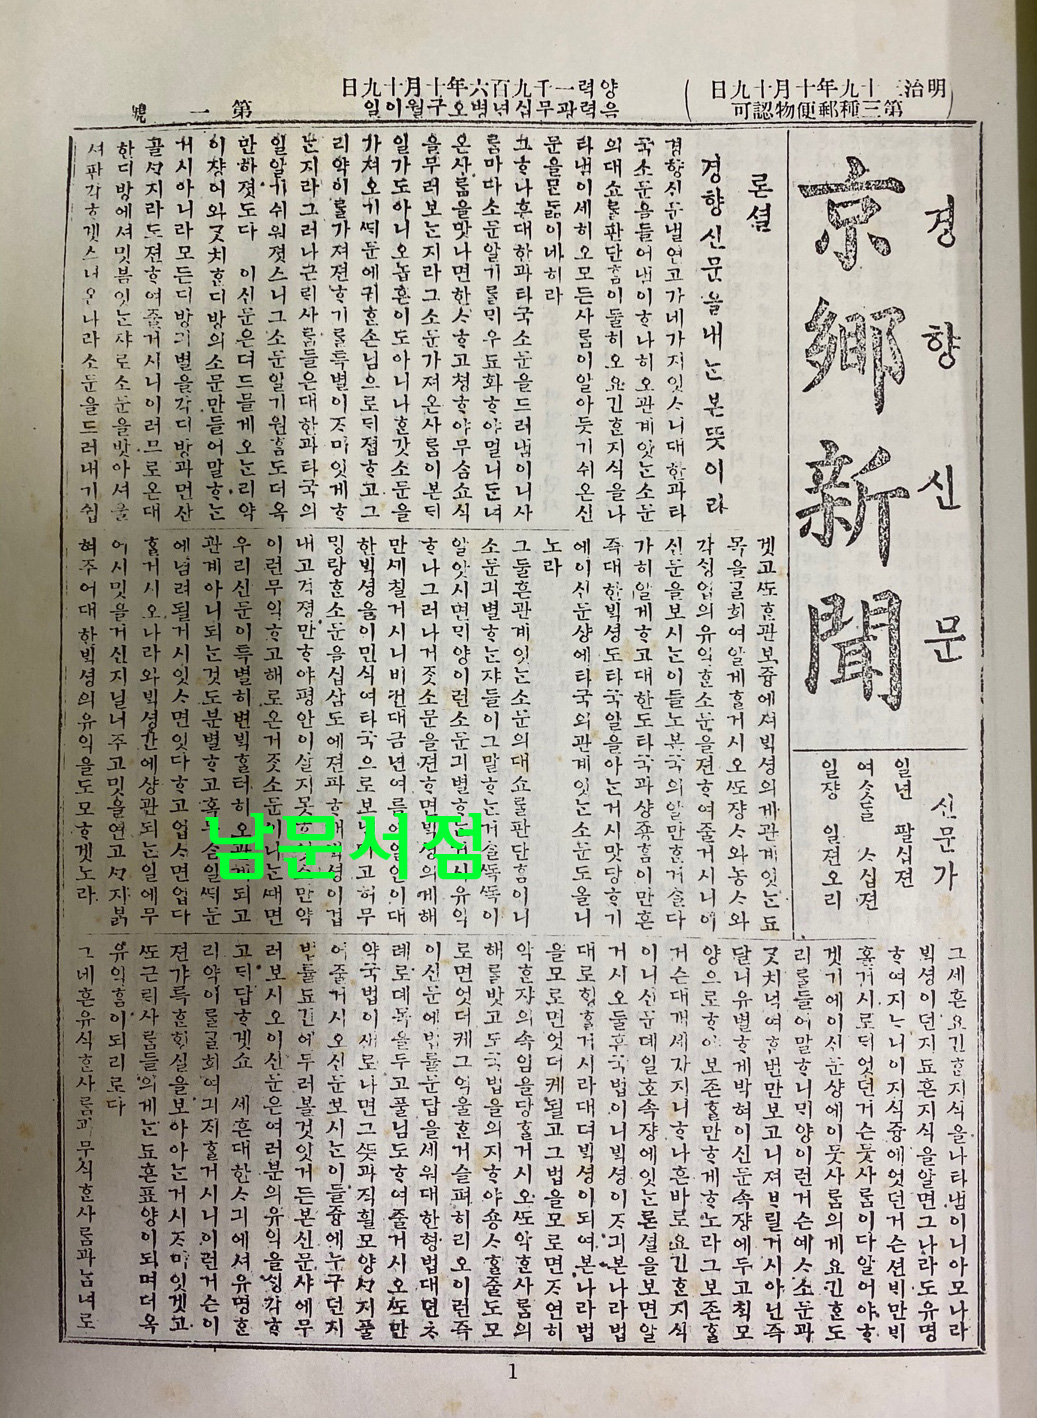 明治三十九年十月十九日
第三種郵便物認可
양력一千九百六年十月十九日
음력광무십년병오구월이일
第一號
경향신문
京鄕新聞
신문가
일년 팔십젼
여ᄉᆞᆺᄃᆞᆯ ᄉᆞ십젼
일쟝 일젼오리
론셜
경향신문을내ᄂᆞᆫ본뜻이라
경향신문낼연고가네가지잇ᄉᆞ니대한과타
국소문을들어냄이ᄒᆞ나히오관계잇ᄂᆞᆫ소문
의대쇼를판단ᄒᆞᆷ이둘히오요긴ᄒᆞᆫ지식을나
타냄이세히오모든사ᄅᆞᆷ이알아듯기쉬온신
문을ᄆᆞᆫᄃᆞᆲ이네히라
ᄒᆞ나흔대한과타국소문을드러냄이니사
ᄅᆞᆷ마다소문알기ᄅᆞᆯᄆᆡ우됴화ᄒᆞ야멀니ᄃᆞᆫ녀
온사ᄅᆞᆷ을맛나면한ᄉᆞᄒᆞ고쳥ᄒᆞ야무ᄉᆞᆷ쇼식
을무러보ᄂᆞᆫ지라그소문가져온사ᄅᆞᆷ이본ᄃᆡ
일가도아니오놉흔이도아니나ᄒᆞᆫ갓소문을
가져오기ᄯᆡ문에귀ᄒᆞᆫ손님으로ᄃᆡ졉ᄒᆞ고그
리약이ᄅᆞᆯ가져젼ᄒᆞ기ᄅᆞᆯ특별이ᄌᆞ미잇게ᄒᆞ
ᄂᆞᆫ지라그러나근ᄅᆡ사ᄅᆞᆷ들은대한과타국의
일알기쉬워졋스니그소문알기원ᄒᆞᆷ도더옥
만하졋도다 이신문은뎌드믈게오ᄂᆞᆫ리약
이쟝이와ᄀᆞᆺ치ᄒᆞᆫ디방의소문만들어말ᄒᆞᄂᆞᆫ
거시아니라모든디방긔별을각디방과먼산
골ᄭᆞ지라도젼ᄒᆞ여줄거시니이러므로온대
한디방에셔밋븜잇ᄂᆞᆫ쟈로소문을밧아셔울
셔판각ᄒᆞ겟ᄉᆞ며온나라소문을드러내기쉽
겟고ᄯᅩᄒᆞᆫ관보즁에셔ᄇᆡᆨ셩의게관계잇ᄂᆞᆫ됴
목을ᄀᆞᆯ희여알게ᄒᆞᆯ거시오ᄯᅩ쟝ᄉᆞ와농ᄉᆞ와
각ᄉᆡᆼ업의유익ᄒᆞᆫ소문을젼ᄒᆞ여줄거시니이
신문을보시ᄂᆞᆫ이들노본국의알만ᄒᆞᆫ거슬다
가히알게ᄒᆞ고대한도타국과샹죵ᄒᆞᆷ이만흔
즉대한ᄇᆡᆨ셩도타국일을아ᄂᆞᆫ거시맛당ᄒᆞ기
에이신문샹에타국외관계잇ᄂᆞᆫ소문도올니
노라
그둘흔관계잇ᄂᆞᆫ소문의대쇼ᄅᆞᆯ판단ᄒᆞᆷ이니
소문긔별ᄒᆞᄂᆞᆫ쟈들이그말ᄒᆞᄂᆞᆫ거슬ᄯᅩᆨᄯᅩᆨ이
알앗시면ᄆᆡ양이런소문긔별ᄒᆞᄂᆞᆫ거시유익
ᄒᆞ나그러나거즛소문을젼ᄒᆞ면ᄇᆡᆨ셩의게해
한ᄇᆡᆨ셩을이민식여타국으로보낸다고허무
ᄆᆡᆼ랑ᄒᆞᆫ소문을십삼도에젼파ᄒᆞ매ᄇᆡᆨ셩이겁
내고걱졍만ᄒᆞ야평안이살지못
이런무익ᄒᆞ고해로온거즛소문이
우리신문이특별히변ᄇᆡᆨᄒᆞᆯ터히오관계되고
관계아니되ᄂᆞᆫ것도분별ᄒᆞ고혹무ᄉᆞᆷ일ᄯᆡ문
에념려될거시잇ᄉᆞ면잇다ᄒᆞ고업ᄉᆞ면업다
ᄒᆞᆯ거시오나라와ᄇᆡᆨ셩간에샹관되ᄂᆞᆫ일에무
어시밋을거신지닐너주고밋을연고ᄭᆞ지ᄇᆞᆰ
혀주어대한ᄇᆡᆨ셩의유익을도모ᄒᆞ겟노라
그세흔요긴ᄒᆞᆫ지식을나타냄이니아모나라
ᄇᆡᆨ셩이던지됴흔지식을알면그나라도유명
ᄒᆞ여지ᄂᆞ니이지식즁에엇던거슨션ᄇᆡ만ᄇᆡ
홀거시로ᄃᆡ엇던거슨뭇사ᄅᆞᆷ이다알어야ᄒᆞ
겟기에이신문샹에이뭇사ᄅᆞᆷ의게요긴ᄒᆞᆫ도
리ᄅᆞᆯ들어말ᄒᆞ니ᄆᆡ양이런거슨예ᄉᆞ소문과
ᄀᆞᆺ치넉여ᄒᆞᆫ번만보고니져ᄇᆞ릴거시아닌즉
달니유별ᄒᆞ게박혀이신문속쟝에두고ᄎᆡᆨ모
양으로ᄒᆞ야보존ᄒᆞᆯ만ᄒᆞ게ᄒᆞ노라그보존ᄒᆞᆯ
거슨대개세가지니ᄒᆞ나흔바로요긴ᄒᆞᆫ지식
이니신문뎨일호속쟝에잇ᄂᆞᆫ론셜을보면알
거시오둘흔국법이니ᄇᆡᆨ셩이ᄌᆞ긔본나라법
대로ᄒᆡᆼᄒᆞᆯ거시라대뎌ᄇᆡᆨ셩이되여본나라법
을모로면엇더케될고그법을모로면ᄌᆞ연히
악ᄒᆞᆫ쟈의속임을당ᄒᆞᆯ거시오ᄯᅩ악ᄒᆞᆫ사ᄅᆞᆷ의
해ᄅᆞᆯ밧고도국법을의지ᄒᆞ야숑ᄉᆞᄒᆞᆯ줄도모
로면엇더케그억울ᄒᆞᆫ거슬펴히리오이런즉
이신문에법률문답을세워대한형법대뎐ᄎᆞ
례로뎨목을두고풀님도ᄒᆞ여줄거시오ᄯᅩ만
약국법이새로나면그ᄯᅳᆺ과직흴모양ᄭᆞ지풀
어줄거시오신문보시ᄂᆞᆫ이들즁에누구던지
법률됴건에무러볼것잇거든본신문샤에무
러보시오이신문은여러분의유익을ᄉᆡᆼ각ᄒᆞ
고ᄃᆡ답ᄒᆞ겟쇼 세흔대한ᄉᆞ긔에셔유명ᄒᆞᆫ
리약이ᄅᆞᆯᄀᆞᆯ희여긔ᄌᆡᄒᆞᆯ거시니이런거슨이
젼갸륵ᄒᆞᆫᄒᆡᆼ실을보아아ᄂᆞᆫ거시ᄌᆞ미잇겟고
ᄯᅩ근ᄅᆡ사ᄅᆞᆷ들의게ᄂᆞᆫ됴흔표양이되며더옥
유익ᄒᆞᆷ이되리로다
그네흔유식ᄒᆞᆫ사ᄅᆞᆷ과무식ᄒᆞᆫ사ᄅᆞᆷ과남녀로
남문서점
1